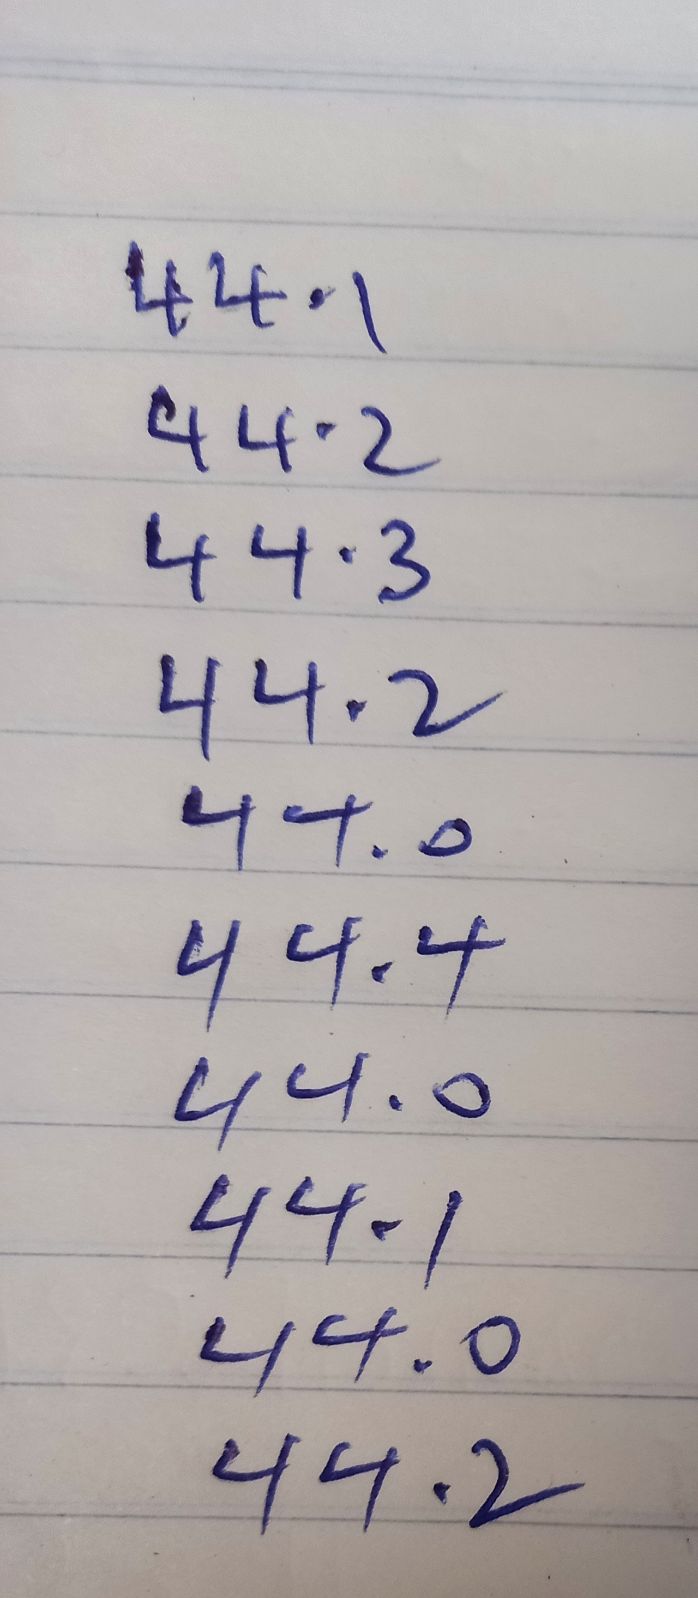 44.1
44.2
44.3
44.2
44.0
44.4
44.0
44.1
44.0
44.2